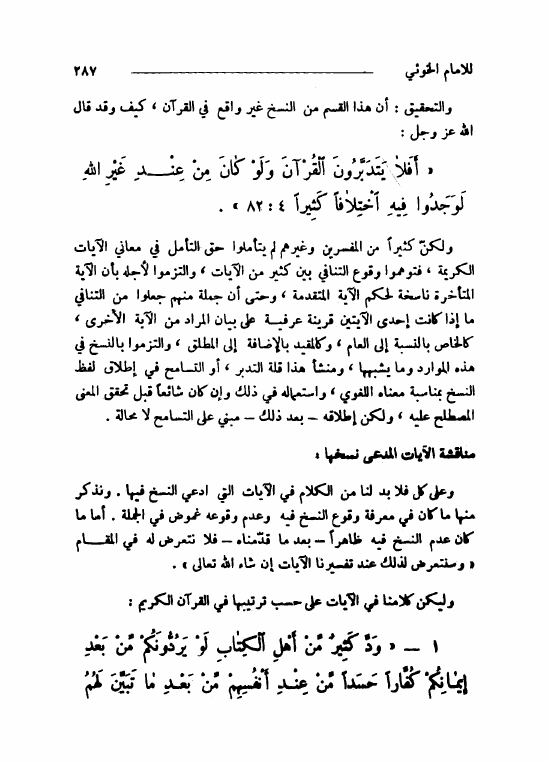 للامام الخوئي ٢٨٧
والتحقيق : أن هذا القسم من النسخ غير واقع في القرآن ، كيف وقد قال
الله عز وجل :
« أَفَلاٰ يَتَدَبَّرُونَ ٱلْقُرْآنَ وَلَوْ كٰانَ مِنْ عِنْـــدِ غَيْرِ اللهِ
لَوَجَدُوا فِيهِ ٱخْتِلاٰفاً كَثِيراً ٤ : ٨٢ » .
ولكنّ كثيراً من المفسرين وغيرهم لم يتأملوا حق التأمل في معاني الآيات
الكريمة ، فتوهموا وقوع التنافي بين كثير من الآيات ، والتزموا لأجله بأن الآية
المتأخرة ناسخة لحكم الآية المتقدمة ، وحتى أن جملة منهم جعلوا من التنافي
ما إذا كانت إحدى الآيتين قرينة عرفيـــة على بيان المراد من الآية الأخرى ،
كالخاص بالنسبة إلى العام ، وكالمقيد بالإضافة إلى المطلق ، والتزموا بالنسخ في
هذه الموارد وما يشبهها ، ومنشأ هذا قلة التدبر ، أو التسامح في إطلاق لفظ
النسخ بمناسبة معناه اللغوي ، واستعماله في ذلك وإن كان شائعاً قبل تحقق المعنى
المصطلح عليه ، ولكن إطلاقه – بعد ذلك – مبني على التسامح لا محالة .
مناقشة الآيات المدعى نسخها :
وعلى كل فلا بد لنا من الكلام في الآيات التي ادعي النسخ فيها . ونذكر
منها ما كان في معرفة وقوع النسخ فيه وعدم وقوعه غموض في الجملة . أما ما
كان عدم النسخ فيه ظاهراً – بعد ما قدّمناه – فلا نتعرض له في المقـــام
« وسنتعرض لذلك عند تفسيرنا الآيات إن شاء الله تعالى » .
وليكن كلامنا في الآيات على حسب ترتيبها في القرآن الكريم :
١ – « وَدَّ كَثِيرٌ مِّنْ أَهْلِ ٱلْكِتٰابِ لَوْ يَرُدُّونَكُمْ مِّنْ بَعْدِ
إِيمٰانِكُمْ كُفّٰاراً حَسَداً مِّنْ عِنْـدِ أَنْفُسِهِمْ مِّنْ بَعْـدِ مٰا تَبَيَّنَ لَهُمُ